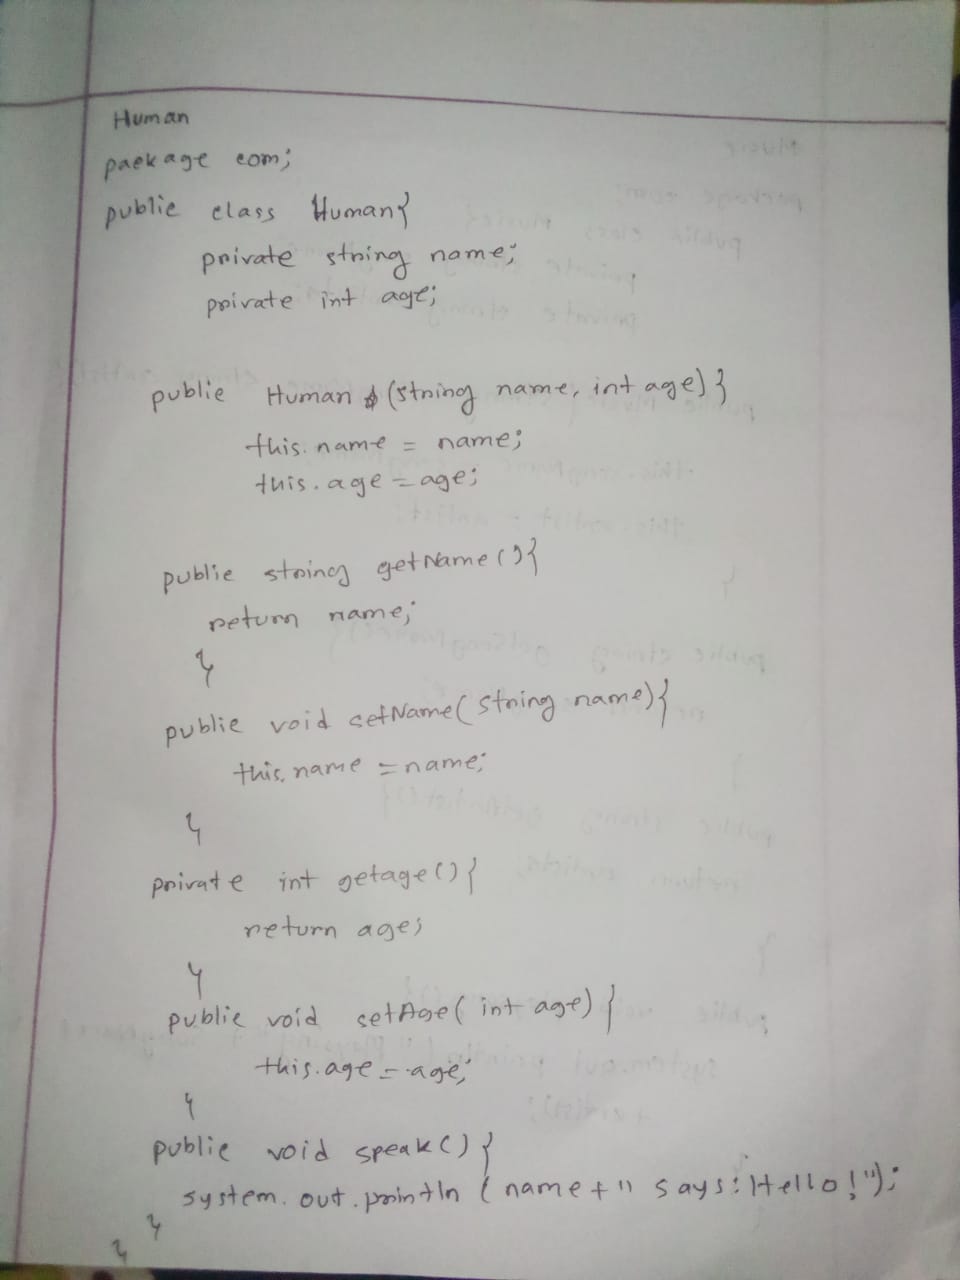 Human
package com;
public class Human{
private string name;
private int age;
public Human (string name, int age) }
this.name = name;
this.age = age;
public string getName(){
return name;
}
public void setName(string name){
this.name = name;
}
private int getage(){
return age;
}
public void setAge(int age) {
this.age = age;
}
public void speak() {
system.out.println (name+" says: Hello!");
}
}